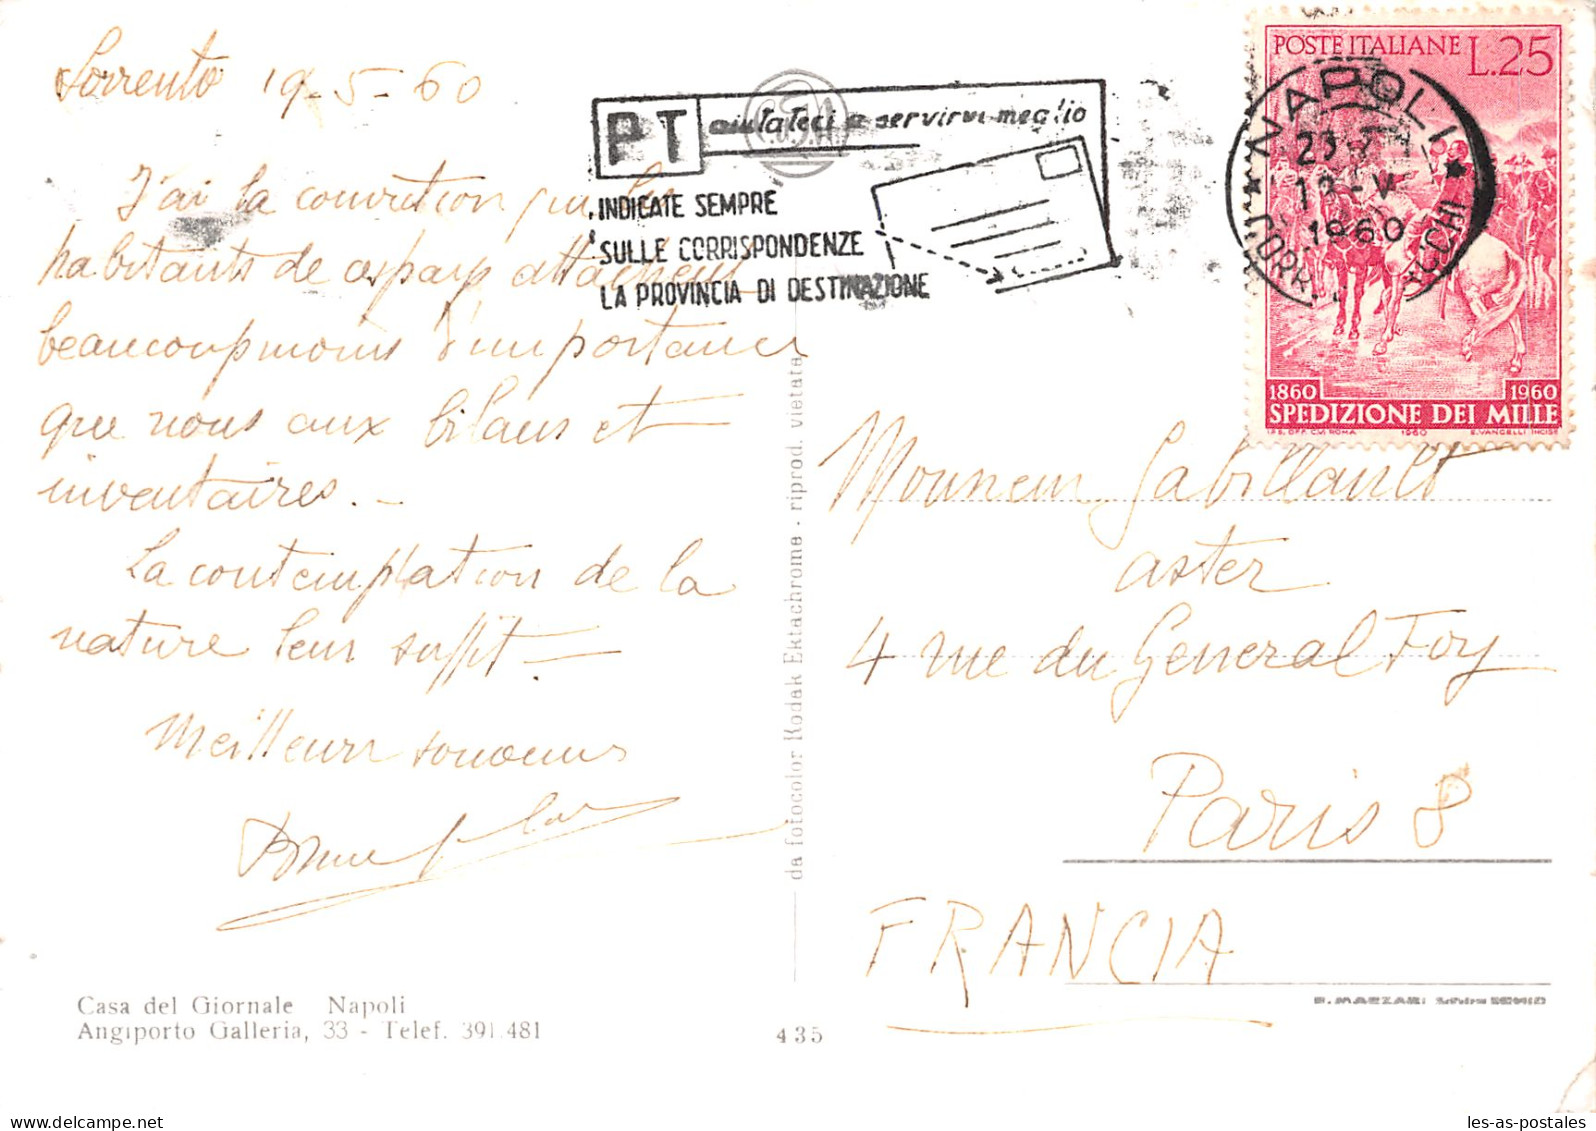 Sorrento 19-5-60
J'ai la conviction que les
habitants de ces pays attachent
beaucoup moins d'importance
que nous aux bilans et
inventaires. -
La contemplation de la
nature leur suffit -
Meilleurs souvenirs
Casa del Giornale Napoli
Angiporto Galleria, 33 - Telef. 391.481
435
da fotocolor Kodak Ektachrome - riprod. vietata
PT aiutateci a servirvi meglio
INDICATE SEMPRE
SULLE CORRISPONDENZE
LA PROVINCIA DI DESTINAZIONE
POSTE ITALIANE L.25
NAPOLI
1960
1860 1960
SPEDIZIONE DEI MILLE
I.P.S. OFF. CVI. ROMA 1960 E. VANGELLI INCISE
Monsieur Gabillault
aster
4 rue du General Foy
Paris 8
FRANCIA
les-as-postales